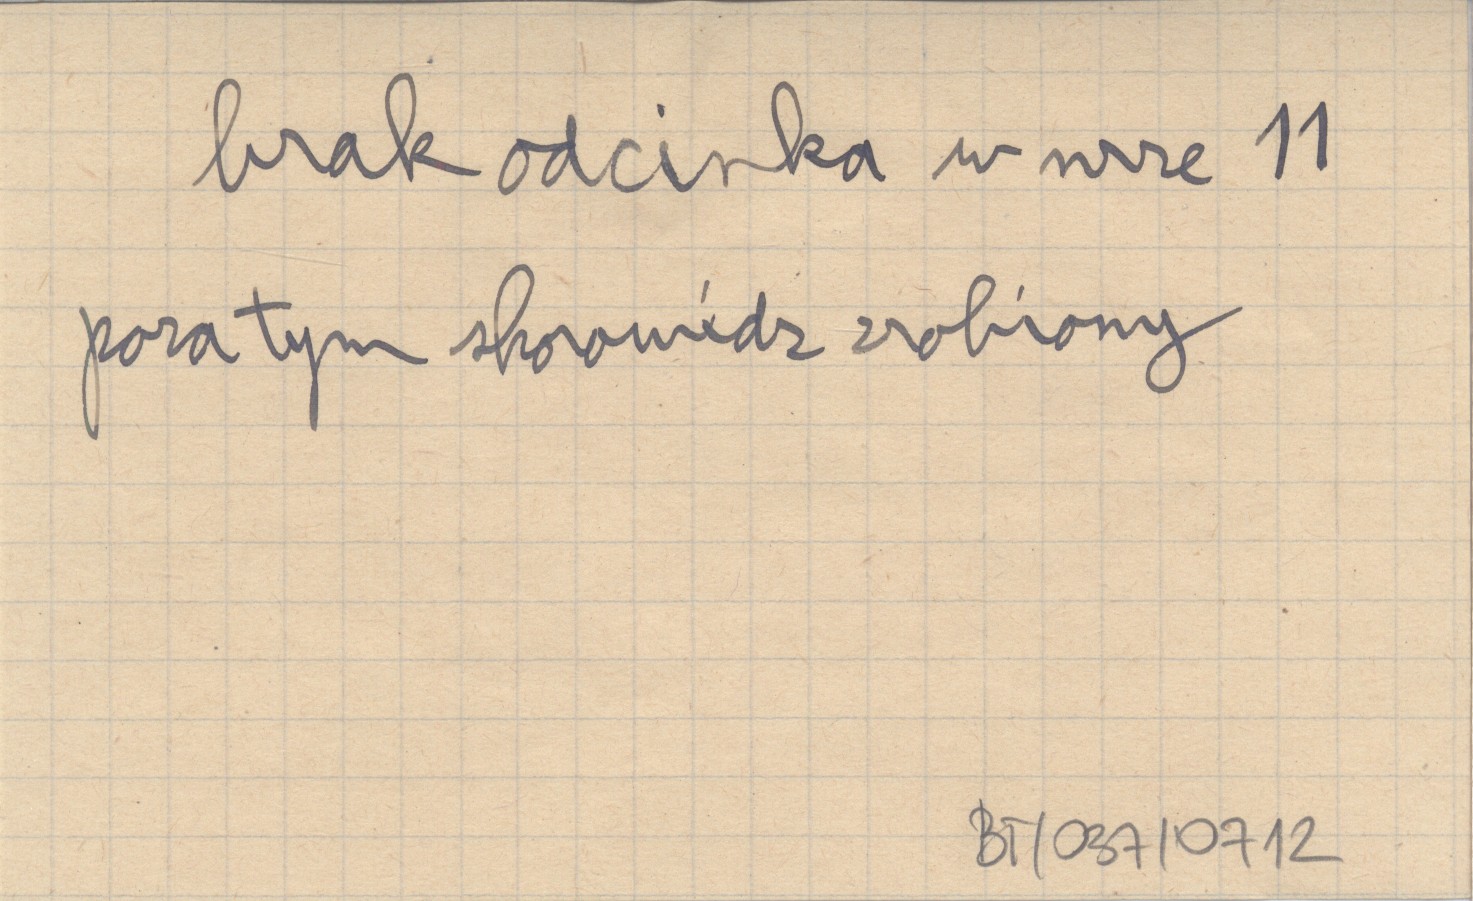 brak odcinka w nrze 11
poza tym skorowidz zrobiony
BT/037/0712